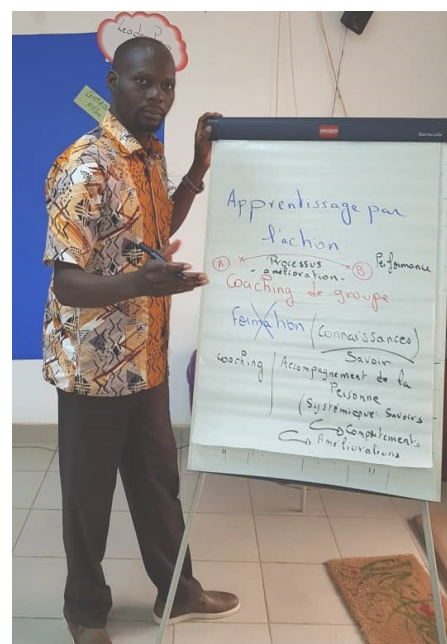 Leader
Apprentissage par
l'action
A Processus B Performance
amélioration
Coaching de groupe
Formation (Connaissances)
Savoir
Coaching Accompagnement de la
Personne
(Systémique: Savoirs
Comportements
Améliorations